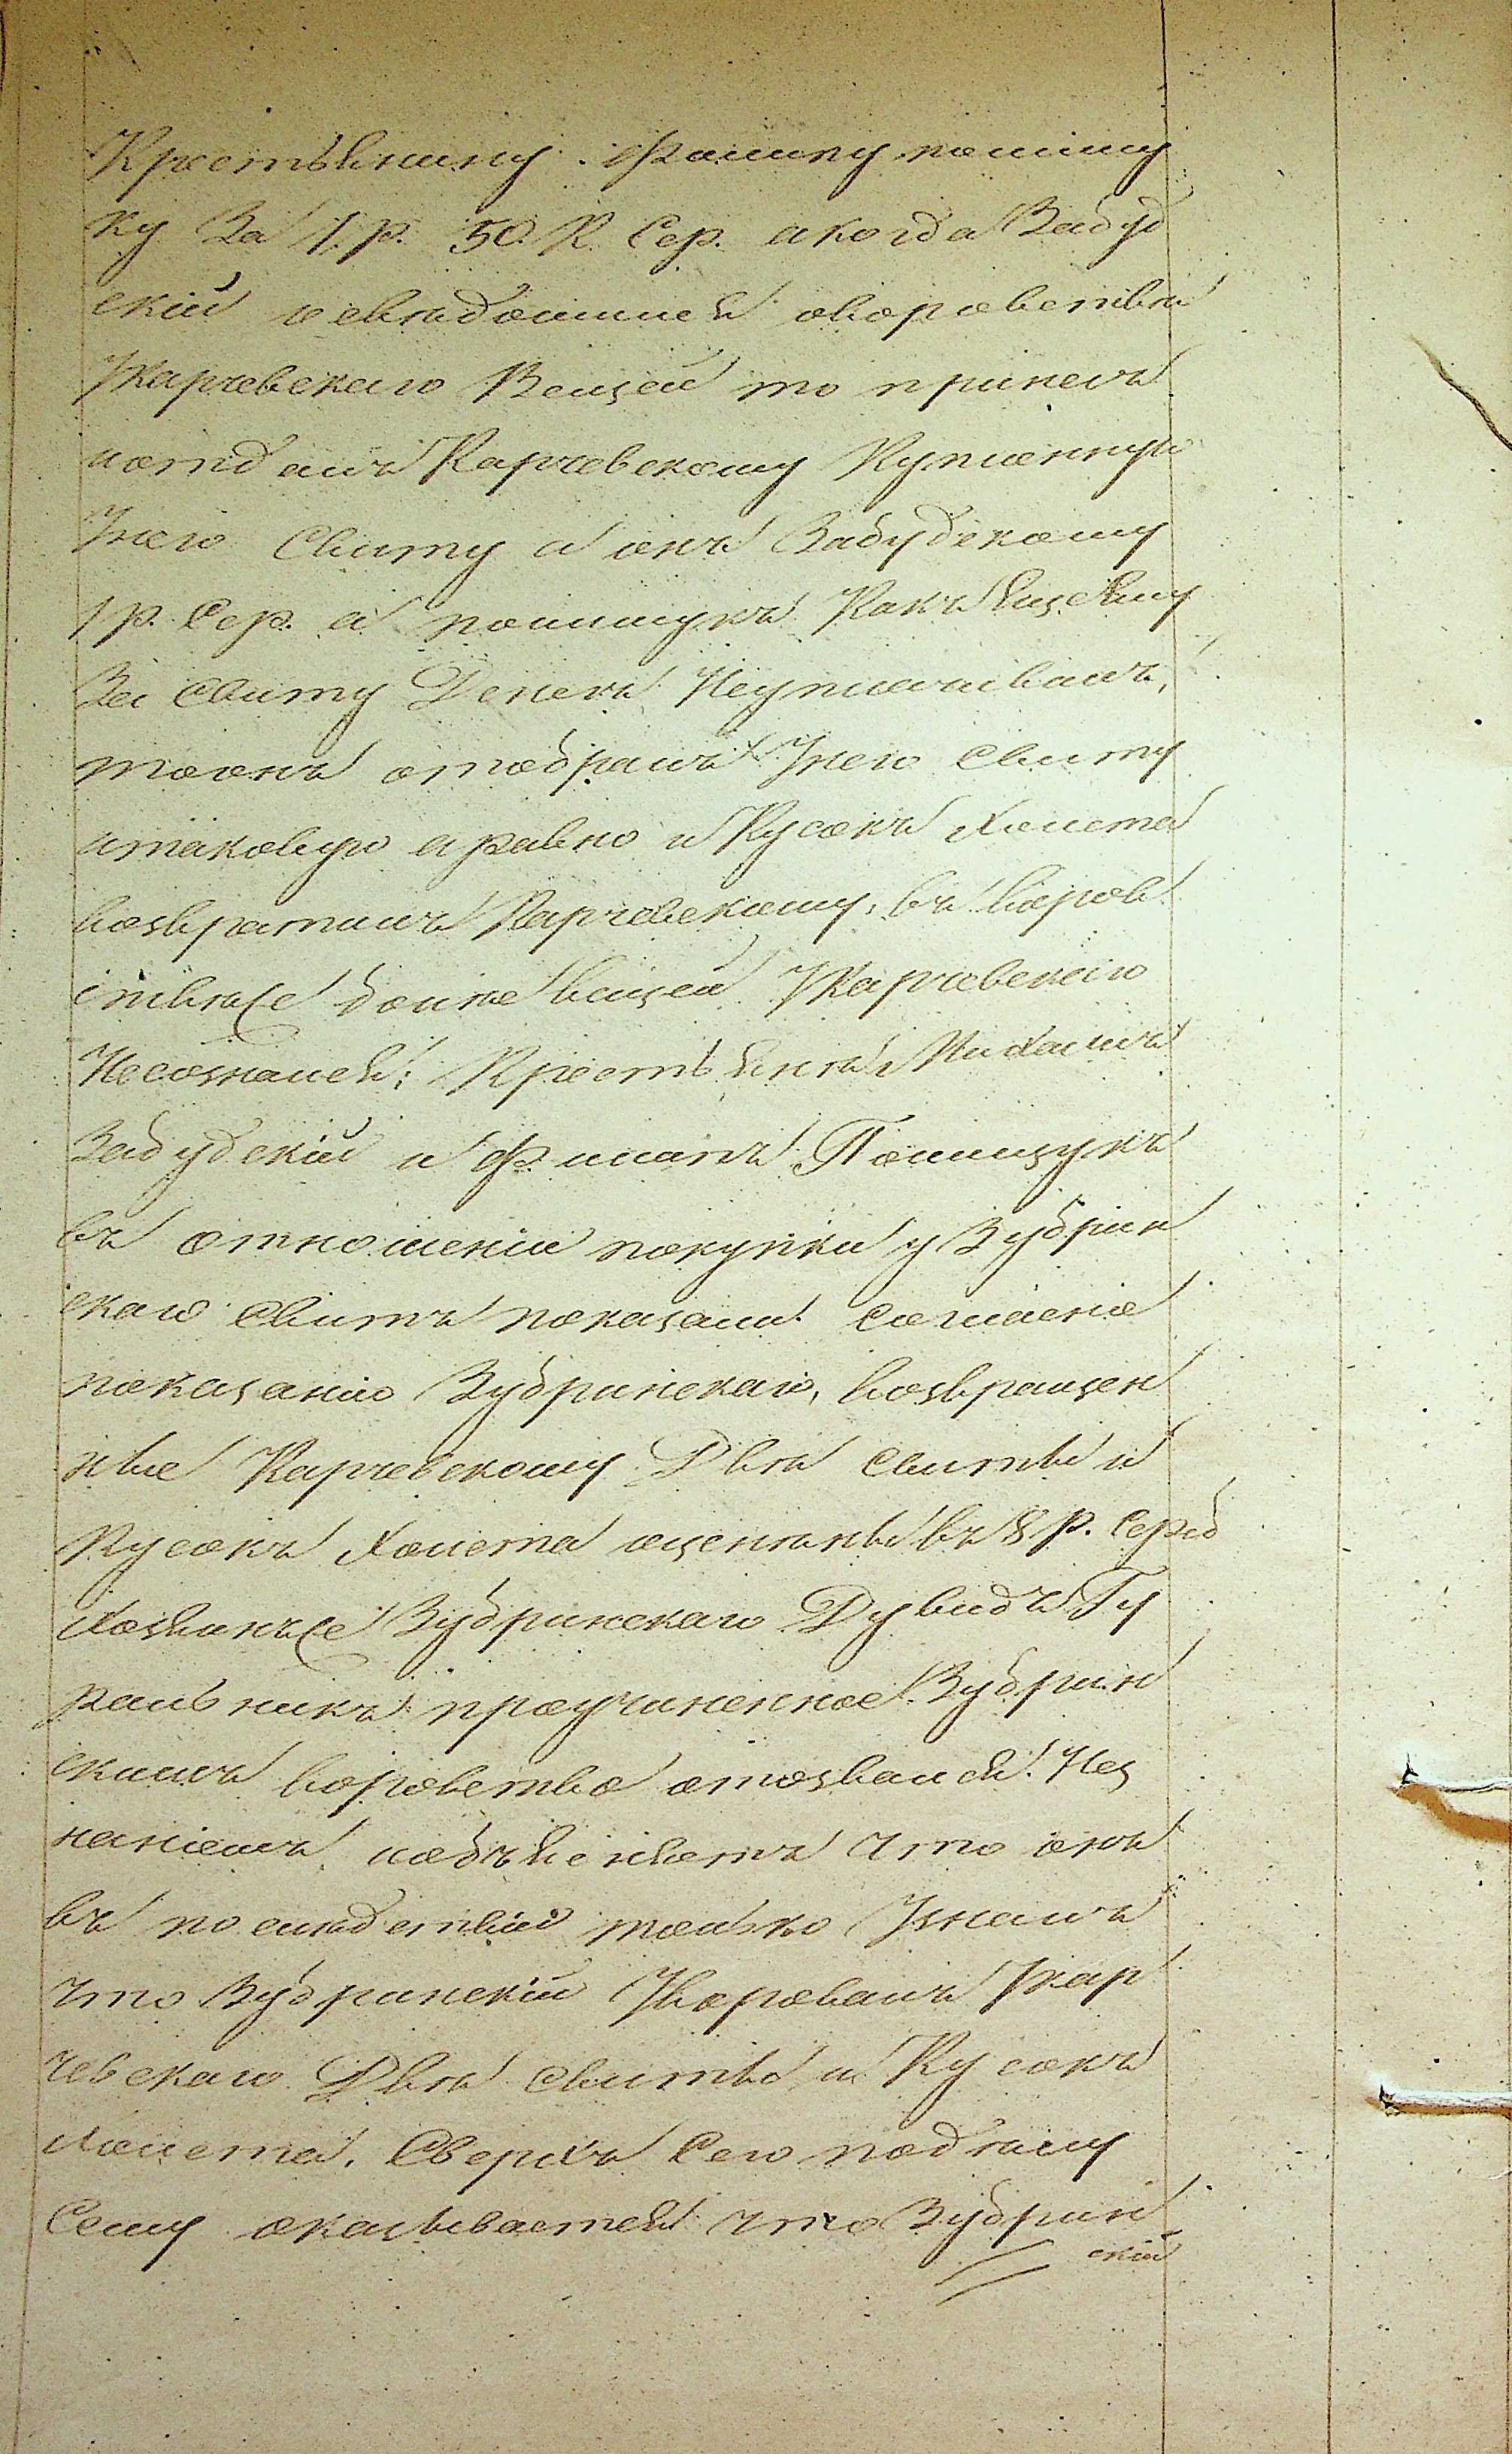 Крестьянину Филипу полищу
ку За 1 р. 50. К. Сер. а когда Забуд
скій осведомился оворовстве
Укарчевскаго Вещей то принелъ
иотдалъ Карчевскому Купленную
Унего Свиту и онъ Забудскому
1 р. Сер. а полищукъ Какъ Ещеему
За Свиту Денегъ Неуплачивалъ,
тоонъ отобралъ Унего Свиту
итаковую а равно и Кусокъ Холста
возвратилъ Карчевскому, въ воров
стве же более вещей Укарчевскаго
Несознался; Крестьяне Михаилъ
Забудскій и Филипъ Полищукъ
въ отношеніи покупки у Зубрин
скаго Свитъ показали Согласно
показанію Зубринскаго, возвращен
ные Карчевскому Две Свиты и
Кусокъ Холста оценены въ 8 р. Сереб
Хозяинъ же Зубринскаго Дувидъ Гу
ральникъ проучиненное Зубрин
скимъ воровство отозвался Нез
наніемъ, иобъясняетъ что онъ
въ последствіи только Узналъ
что Зубринскій Уворовалъ Укар
чевскаго Две Свиты и Кусокъ
Холста. Сверхъ Сего поделу
Сему оказывается что Зубрин
скій